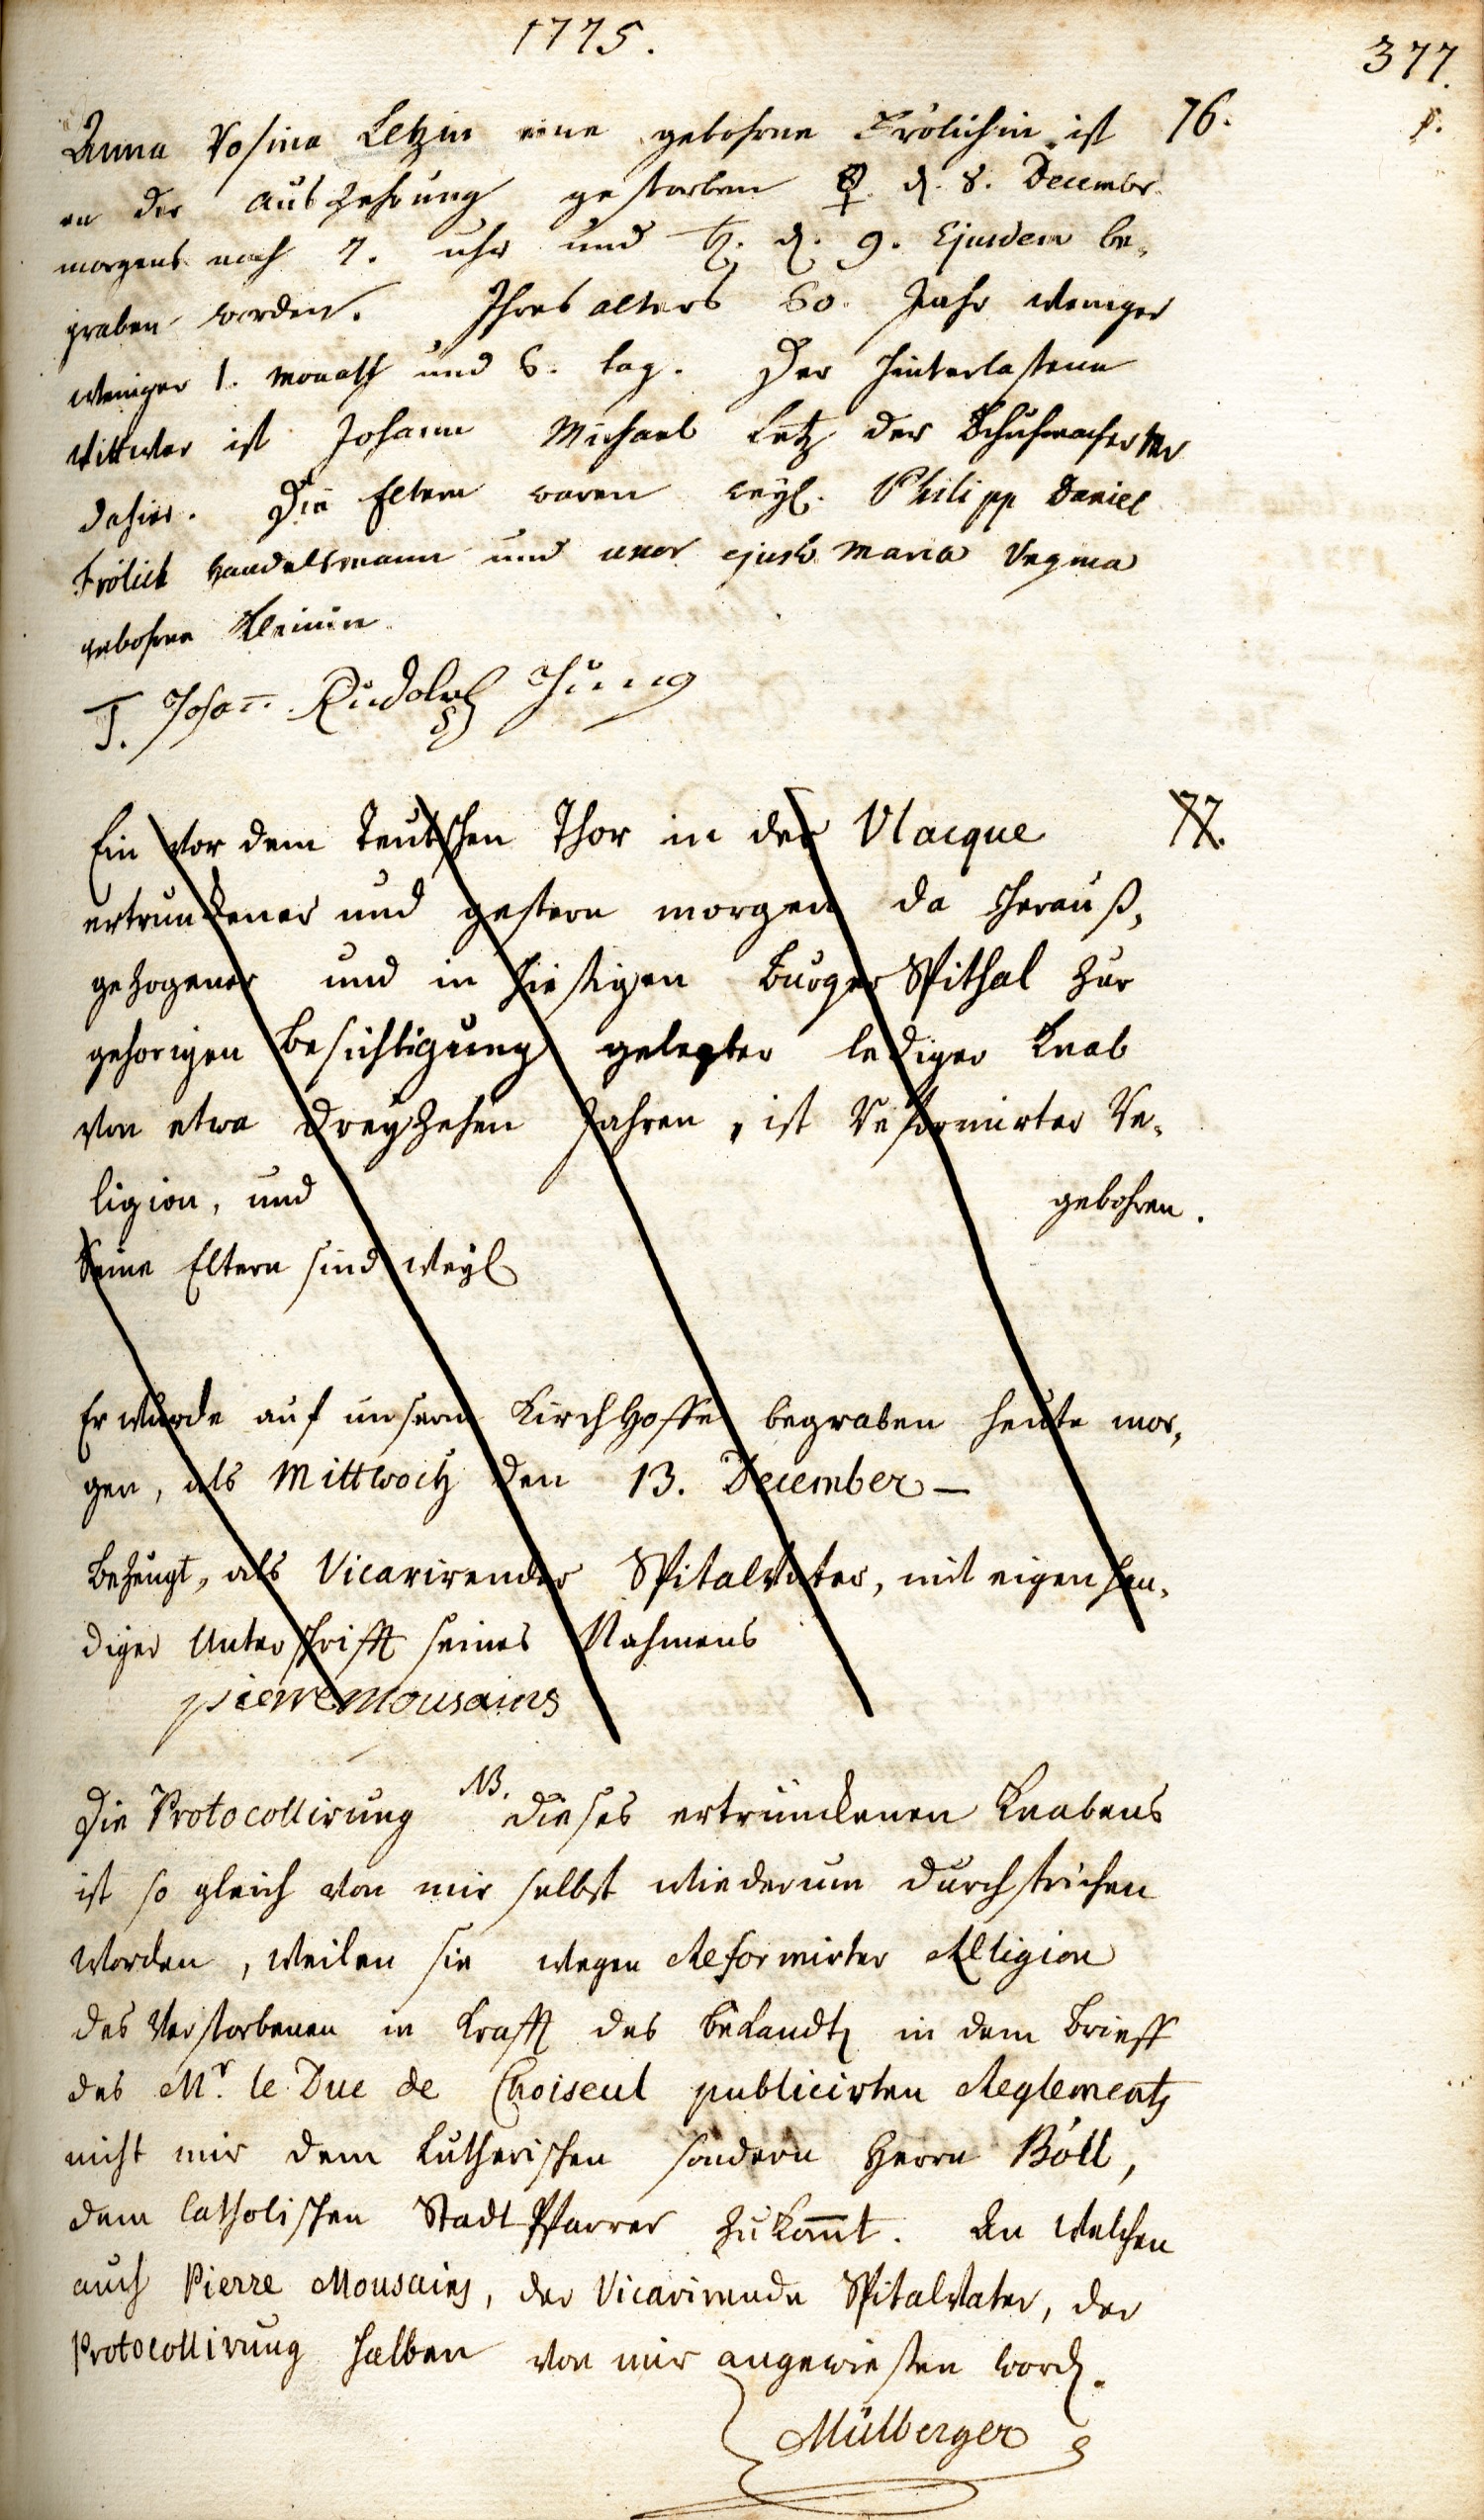 1775.
377.
Anna Rosina Letzin eine gebohrne Frölichin ist 76.
an der Auszehrung gestorben ♀ d. 8. Decembr.
morgens nach 7. uhr und ♄. d. 9. Ejusdem be-
graben worden. Ihres alters 60. Jahr weniger
weniger 1. Monath und 6. tag. Der hinterlassene
Wittwer ist Johann Michael Letz der Schuhmacher
dahier. Die Eltern waren weyl. Philipp Daniel
Frölich Handelsmann und uxor ejusd. Maria Regina
gebohrne Kleinin
T. Johann Rudolph Jung
Ein vor dem Teutschen Thor in der Vlacque 77.
ertrunckener und gestern morgen da herauß-
gezogener und in hiesigen Burger Spithal zur
gehorigen Besichtigung gelegter lediger Knab
von etwa dreyzehen Jahren, ist Reformirter Re-
ligion, und gebohren.
Seine Eltern sind weyl
Er wurde auf unserm Kirchhoffe begraben heute mor-
gen, als Mittwoch den 13. December –
Bezeugt, als Vicarirender Spitalvater, mit eigenhän-
diger Unterschrifft seines Nahmens
pierre mousains
NB.
Die Protocollirung dieses ertrunckenen Knabens
ist so gleich von mir selbst wiederum durchstrichen
worden, weilen sie wegen Reformirter Religion
des Verstorbenen in Krafft des bekandten in dem Brieff
des Mr. le Duc de Choiseul publicirten Reglements
nicht mir dem Lutherischen sondern Herrn Böll,
dem Catholischen Stadt Pfarrer zukommt. An welchen
auch Pierre Mousains, der Vicarirende Spitalvater, der
Protocollirung halben von mir angewiesen worden.
Mülberger